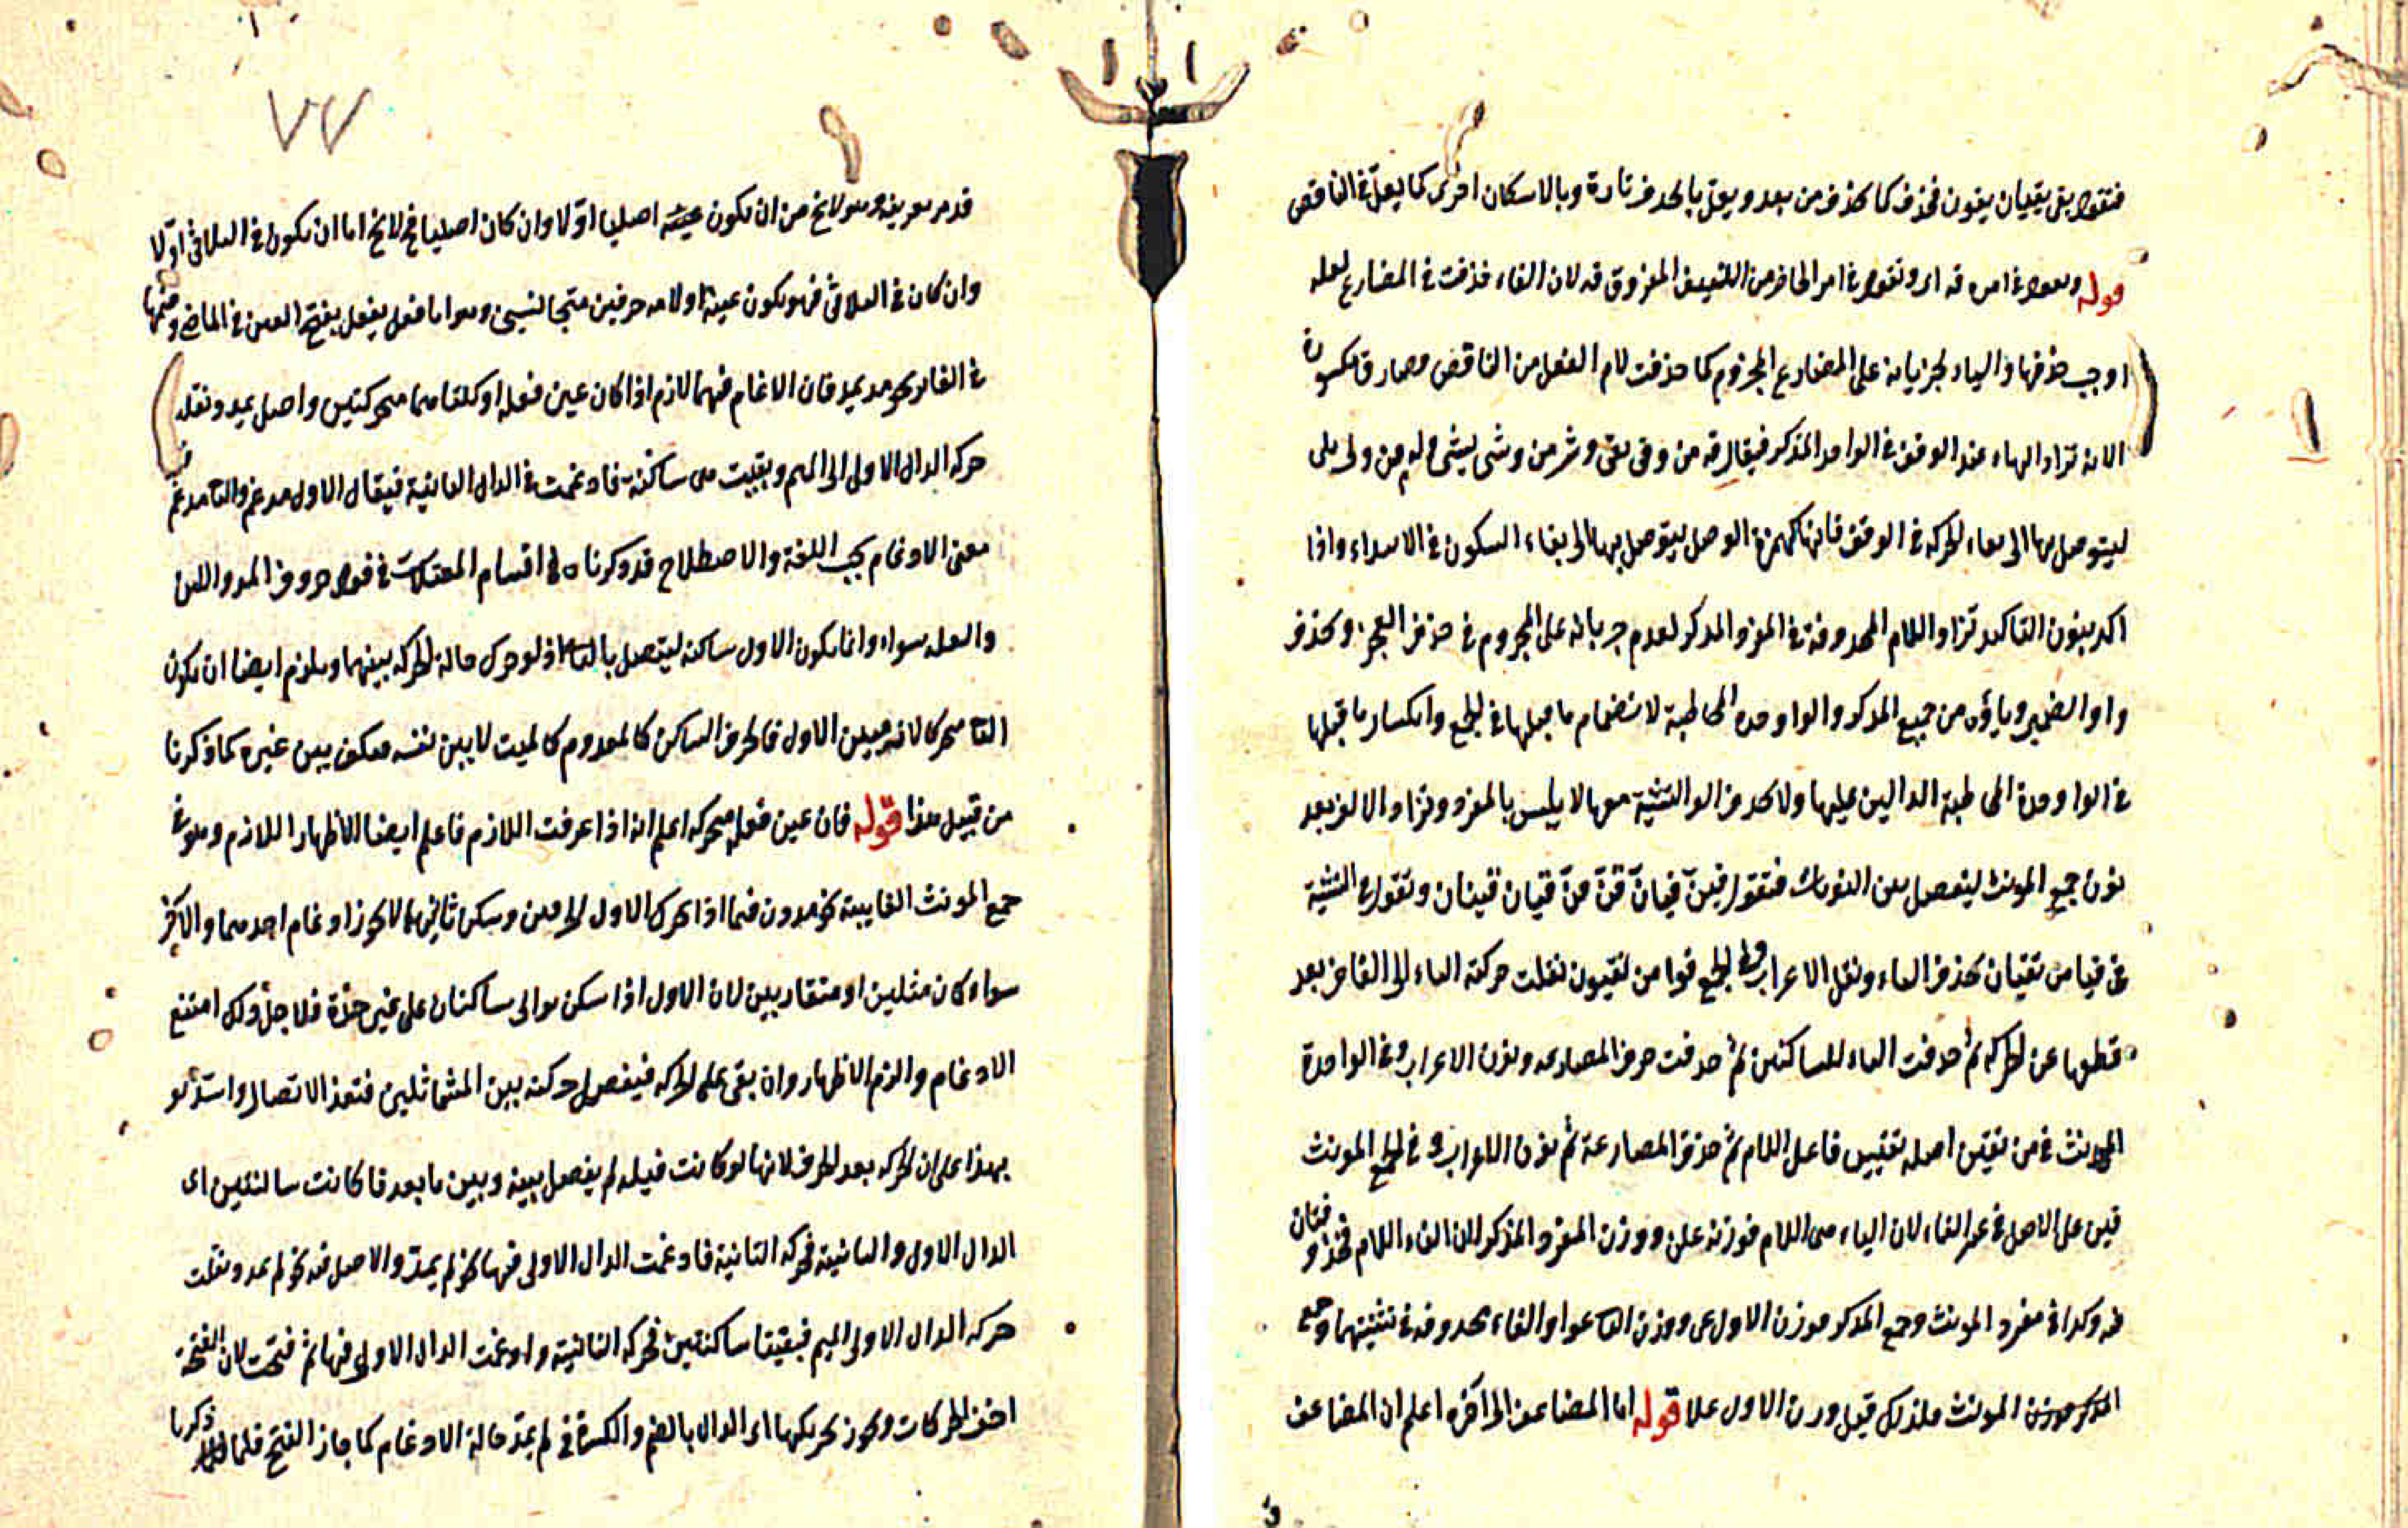 فتقول يقى يقيان يقون فحذف كما حذف من يعد ويعل بالحذف تارة وبالاسكان اخرى كما يعل في الناقص
قوله وتقول في امره قه اى وتقول في امر الحاضر من اللفيف المفروق قه لان الفاء حذفت في المضارع لعله
اوجبت حذفها والياء لجريانه على المضارع المجزوم كما حذفت لام الفعل من الناقص وصار ق مكسورة
الا انه تزاد الهاء عند الوقف في الواحد المذكر فيقال قه من وقى يقى وشه من وشى يشى وله من ولى يلى
ليتوصل بها الى بقاء الحركة في الوقف فانها كهمزة الوصل ليتوصل بها الى بقاء السكون في الابتداء واذا
اكد بنون التاكيد تزاد اللام المحذوفة في المفرد المذكر لعدم جريانه على المجزوم في حذف العجز وتحذف
واو الضمير وياؤه من جميع المذكر والواحدة المخاطبة لانضمام ما قبلها في الجمع وانكسار ما قبلها
في الواحدة المخاطبة الدالين عليها ولا تحذف الف التثنية معها لا يلبس بالمفرد وتزاد الالف بعد
نون جمع المونث ليفصل بين النونات فتقول قين قيان قن قن قيان قينان وتقول في التثنية
في قيا من تقيان تحذف التاء ونقل الاعراب وفي الجمع قوا من تقيون نقلت حركة الياء الى القاف بعد
قطعها عن الحركة ثم حذفت الياء للساكنين ثم حذفت حرف المضارعة ونون الاعراب وفي الواحدة
المونث في من تقين اصله تقيين فاعل اللام ثم حذف المضارعة ثم نون الاعراب وفي الجمع المونث
قين على الاصل في غير الفاء لان الياء هى اللام فوزنه علن ووزن المفرد المذكر لان الفاء اللام محذوفتان
فه وكذا في مفرد المونث وجمع المذكر فوزن الاول عى ووزن الثانى عوا والفاء محذوفة في تثنيتهما وجمع
المونث فلذلك قيل وزن الاول علا قوله اما المضاعف الى اخره اعلم ان المضاعف
٧٧
قد مر تعريفه وهو لا يخ من ان يكون عينه اصليا او لا وان كان اصليا فلا يخ اما ان يكون في الثلاثى او لا
وان كان في الثلاثى فهو يكون عينه ولامه حرفين متجانسين وهو اما فعل يفعل بفتح العين في الماضى وضمها
في الغابر نحو مد يمد فان الادغام فيهما لازم اذا كان عين فعله او كلتاهما متحركتين واصل يمد ونقل
حركة الدال الاولى الى الميم وبقيت هى ساكنة فادغمت في الدال الثانية فيقال الاول مدغم والثانى مدغم فيه
معنى الادغام بحسب اللغة والاصطلاح قد ذكرناه في اقسام المعتلات في قوله حروف المد واللين
والعله سواء وانما يكون الاول ساكنه ليتصل بالثانى اذ لو حرك حالة الحركة بينهما ويلزم ايضا ان يكون
الثانى متحركا لانه مبين الاول فالحرف الساكن كالمعدوم كالميت لا يبين نفسه فكيف يبين غيره كما ذكرنا
من قبيل هذا قوله فان عين فعله متحركه اعلم انه اذا عرفت اللازم فاعلم ايضا الاظهار اللازم وهو في
جمع المونث الغايبة نحو مددن فما اذا تحرك الاول الحرفين وسكن ثانيهما لا يجوز ادغام احدهما والاخر
سواء كان مثلين او متقاربين لان الاول اذا سكن توالى ساكنان على غير حده فلا جل ذلك امتنع
الادغام والزم الاظهار وان بقى على الحركه فيفصل حركته بين المتماثلين فتعذر الاتصال واستدلو
بهذا على ان الحركه بعد الحرف لانها لو كانت قبله لم يفصل بينه وبين ما بعد فا كانت ساكنتين اى
الدال الاول والثانية فحركه الثانية فادغمت الدال الاولى فيها نحو لم يمد والاصل فيه نحو لم يمدد ونقلت
حركه الدال الاولى الميم فبقيتا ساكنتين فحركه الثانية وادغمت الدال الاولى فيها ثم فتحت لان الفتحة
اخف الحركات ويجوز تحريكها اى الدال بالضم والكسرة في لم يمد حالة الادغام كما جاز الفتح فلما ذكرنا